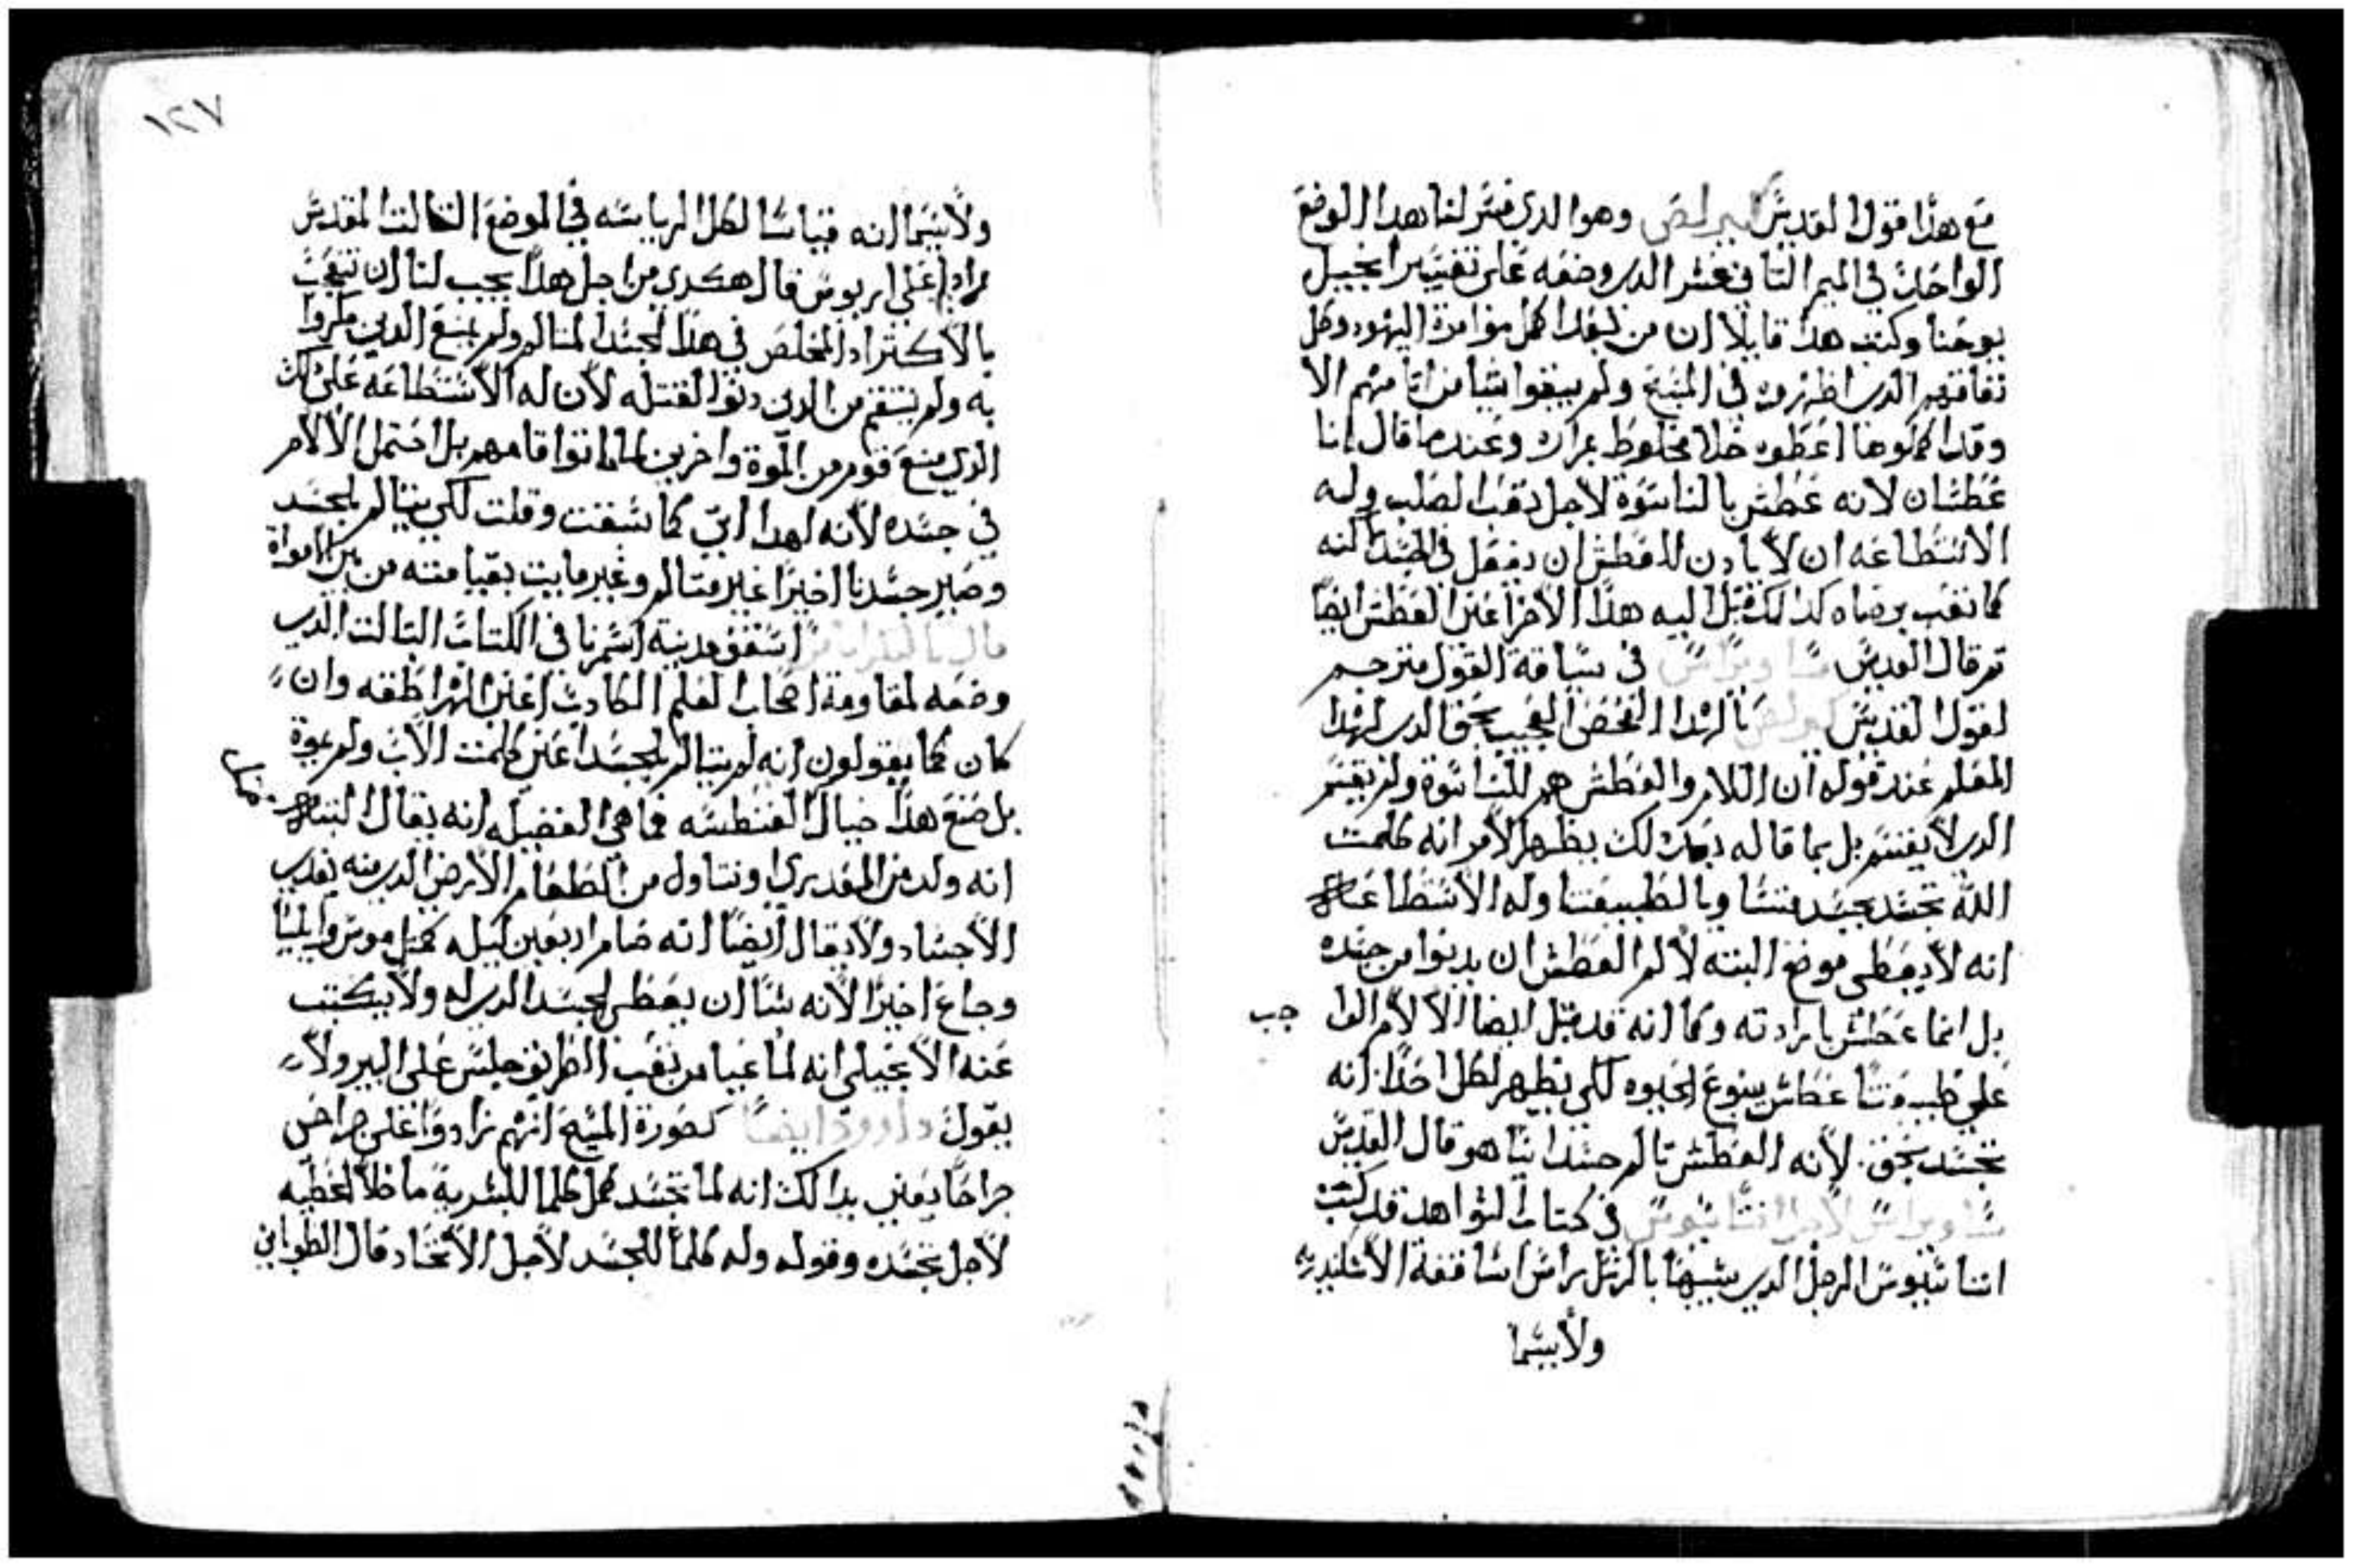 مع هذا قول القديس كيرلص وهو الدي فسر لنا هدا الموضع
الواحد في الميمر التاني عشر الدي وضعه على تفسير انجيل
يوحنا وكتب هدا قايلا ان من بعد كمل موامرة اليهود وكل
نفاقهم الدي اظهروه في المسيح ولم يبقوا شيا من اتامهم الا
وقد اكملوها اعطوه خلا مخلوط بمراره وعندما قال انا
عطشان لانه عطش بالناسوة لاجل تعب الصلب وله
الاستطاعه ان لا يادن للعطش ان يفعل في الجسد لكنه
كما تعب برضاه كدالك قبل اليه هدا الامر اعني العطش ايضا
تم قال القديس ساويرس في سياقة القول مترجم
لقول القديس كيرلص يا لهدا الفحص العجيب بحق الدي لهدا
المعلم عند قوله ان الالام والعطش هم للناسوة ولم يقسم
الدي لا يقسم بل بما قاله بعد دلك يظهر الامر انه كلمت
الله تجسد بجسد متنا وبالطبيعتنا وله الاستطاعه
انه لا يعطي موضع البته لالم العطش ان يدنوا من جسده
بل انما عطش بارادته وكما انه قد قبل ايضا الالام الواجب
على طبيعتنا عطش ينبوع الحيوه لكي يظهر لكل احد انه
تجسد بحق لانه العطش تالم جسدانيا هو قال القديس
ساويرس لاجل اتناسيوس في كتاب الشواهد قد كتب
اتناسيوس الرجل الدي يشبها بالرسل راس اساقفة الاسكندريه
ولاسيما
١٢٧
ولاسيما انه قياسا لكل الرياسه في الموضع التالت المقدس
رادا على اريوس قال هكدي من اجل هدا يجب لنا ان نتعجب
بالاكثر اد المخلص في هذا الجسد المتالم ولم يمنع الدين مكروا
به ولم ينتقم من الدين دنوا لقتله لان له الاستطاعه على دلك
الدي منع قوم من الموة واخرين لما ماتوا اقامهم بل احتمل الالام
في جسده لانه لهدا اتي كما سبقت وقلت لكي يتالم الجسد
وصير جسدنا اخيرا غير متالم وغير مايت بقيامته من بين الامواة
اسقف مدينة اشمرنا في الكتاب التالت الدي
وضعه لمقاومة اصحاب العلم الكادب اعني الهراطقه وان
كان كما يقولون انه لم يتالم الجسد اعني كلمت الاب ولم يموة
بل صنع هدا خيال الفنطسه فما هي الفضيله انه يقال البته
انه ولد من العدري وتناول من الطعام الارضي الدي منه يغدي
الاجساد ولا يقال ايضا انه صام اربعين ليله كمتل موسى وايليا
وجاع اخيرا لانه شا ان يعطي الجسد الدي له ولا يكتب
عنه الانجيلي انه لما عيا من تعب الطريق جلس على البير ولا
يقول داوود ايضا كصورة المسيح انهم زادوا على جراحي
جراحا يعني بدالك انه لما تجسد كمل كلما للبشرية ما خلا الخطيه
لاجل تجسده وقوله وله كلما للجسد لاجل الاتحاد قال الطوباني